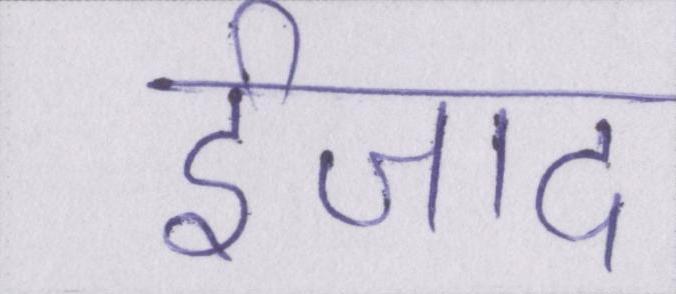 ईजाद